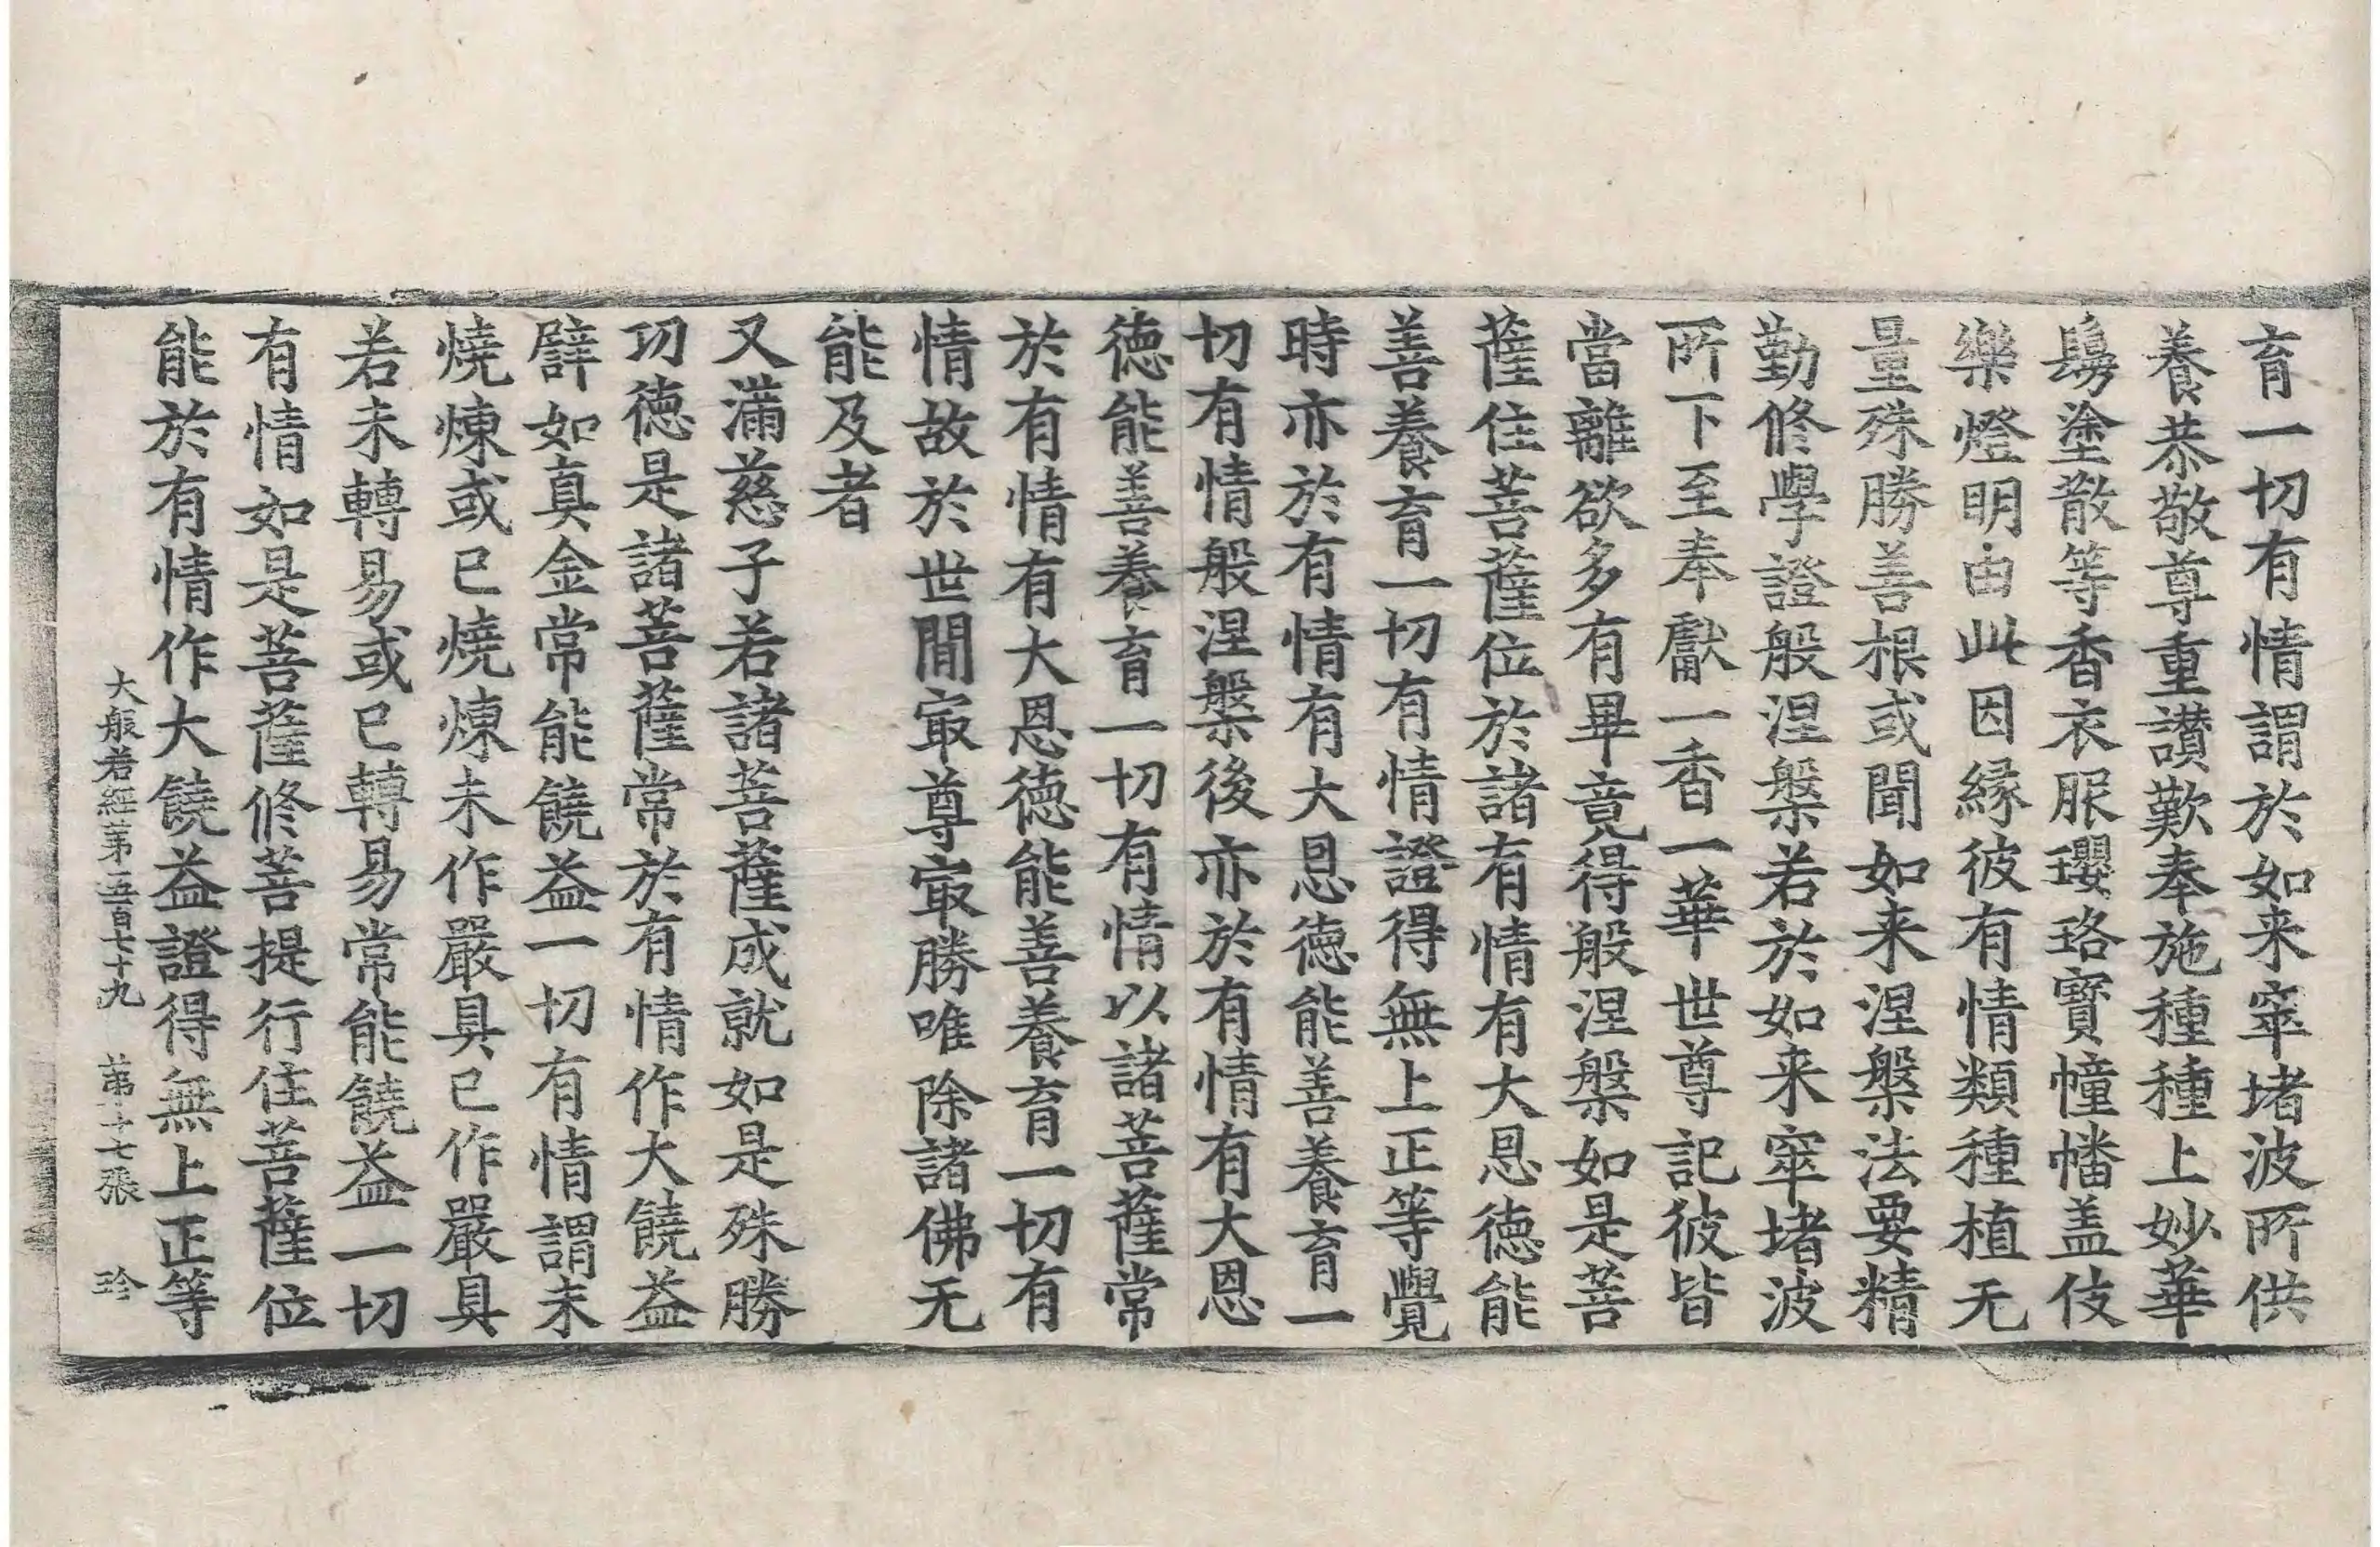 育一切有情謂於如来窣堵波所供
養恭敬尊重讃歎奉施種種上妙華
鬘塗散等香衣服瓔珞寶幢幡盖伎
樂燈明由此因緣彼有情類種植无
量殊勝善根或聞如来涅槃法要精
勤修學證般涅槃若於如来窣堵波
所下至奉獻一香一華世尊記彼皆
當離欲多有畢竟得般涅槃如是菩
薩住菩薩位於諸有情有大恩德能
善養育一切有情證得無上正等覺
時亦於有情有大恩德能善養育一
切有情般涅槃後亦於有情有大恩
德能善養育一切有情以諸菩薩常
於有情有大恩德能善養育一切有
情故於世間㝡尊㝡勝唯除諸佛无
能及者
又滿慈子若諸菩薩成就如是殊勝
功德是諸菩薩常於有情作大饒益
譬如真金常能饒益一切有情謂未
燒煉或已燒煉未作嚴具已作嚴具
若未轉易或已轉易常能饒益一切
有情如是菩薩修菩提行住菩薩位
能於有情作大饒益證得無上正等
大般若經第五百七十九　第十七張　珍